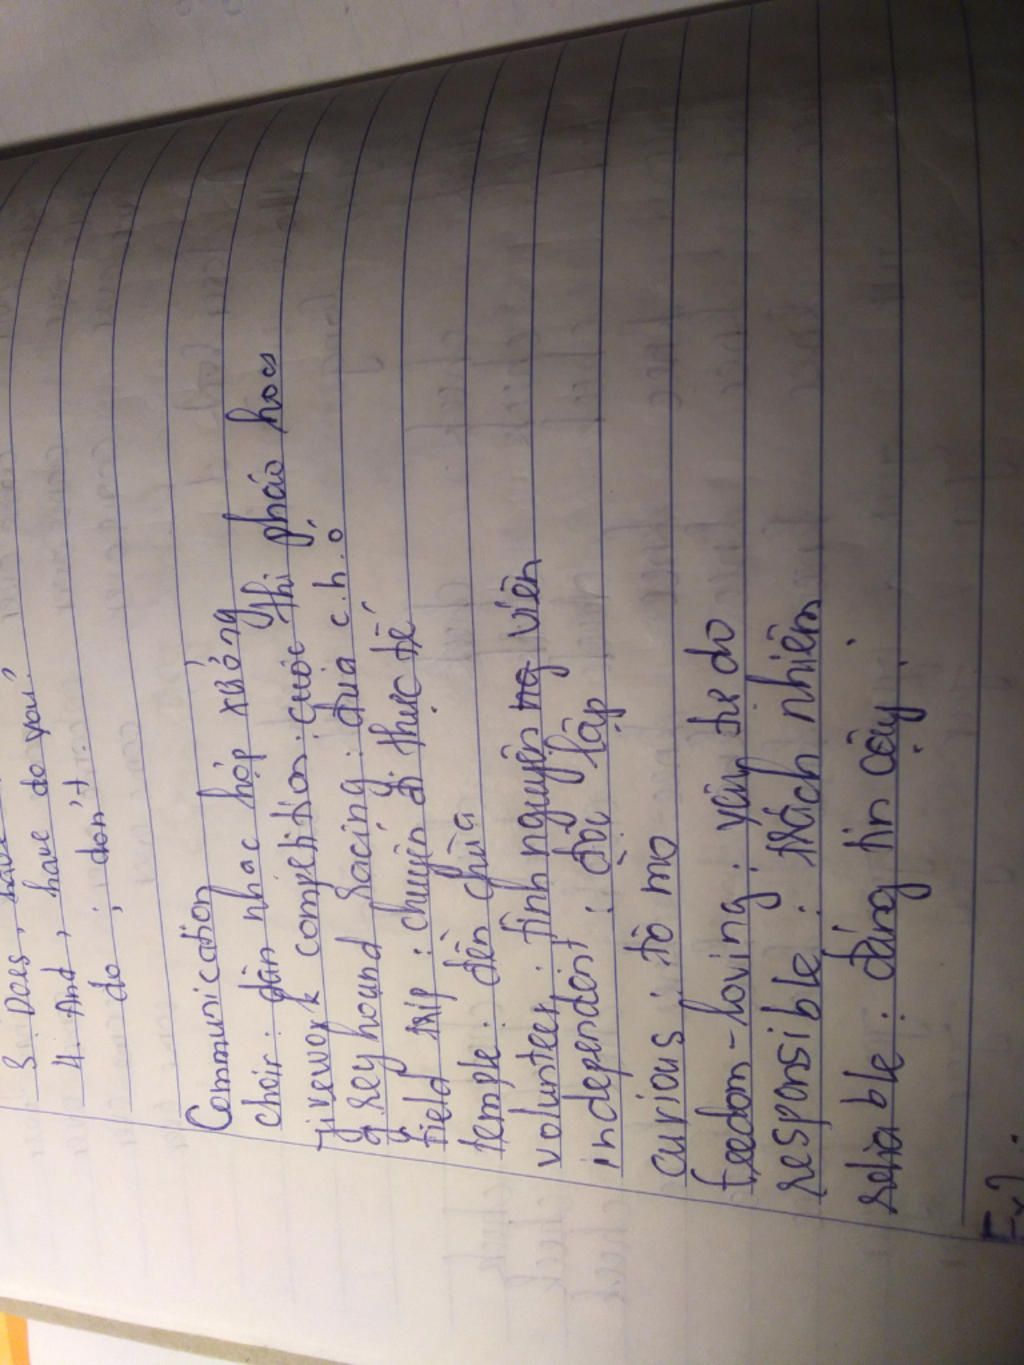 3. Does, have
4. And, have do you?
do ; don't.
Communication
choir : dàn nhạc hợp xướng
firework competition : cuộc thi pháo hoa
greyhound racing : đua c.h.ó
field trip : chuyến đi thực tế
temple : đền chùa
volunteer : tình nguyện viên
independent : độc lập
curious : tò mò
freedom-loving : yêu tự do
responsible : trách nhiệm
reliable : đáng tin cậy
Ex2: